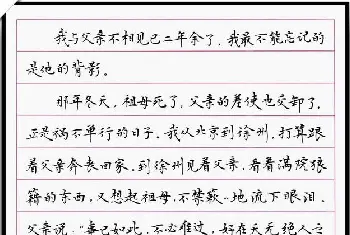 我与父亲不相见已二年余了，我最不能忘记的
是他的背影。
那年冬天，祖母死了，父亲的差使也交卸了，
正是祸不单行的日子，我从北京到徐州，打算跟
着父亲奔丧回家。到徐州见着父亲，看着满院狼
籍的东西，又想起祖母，不禁簌地流下眼泪。
父亲说，“事已如此，不必难过，好在天无绝人之